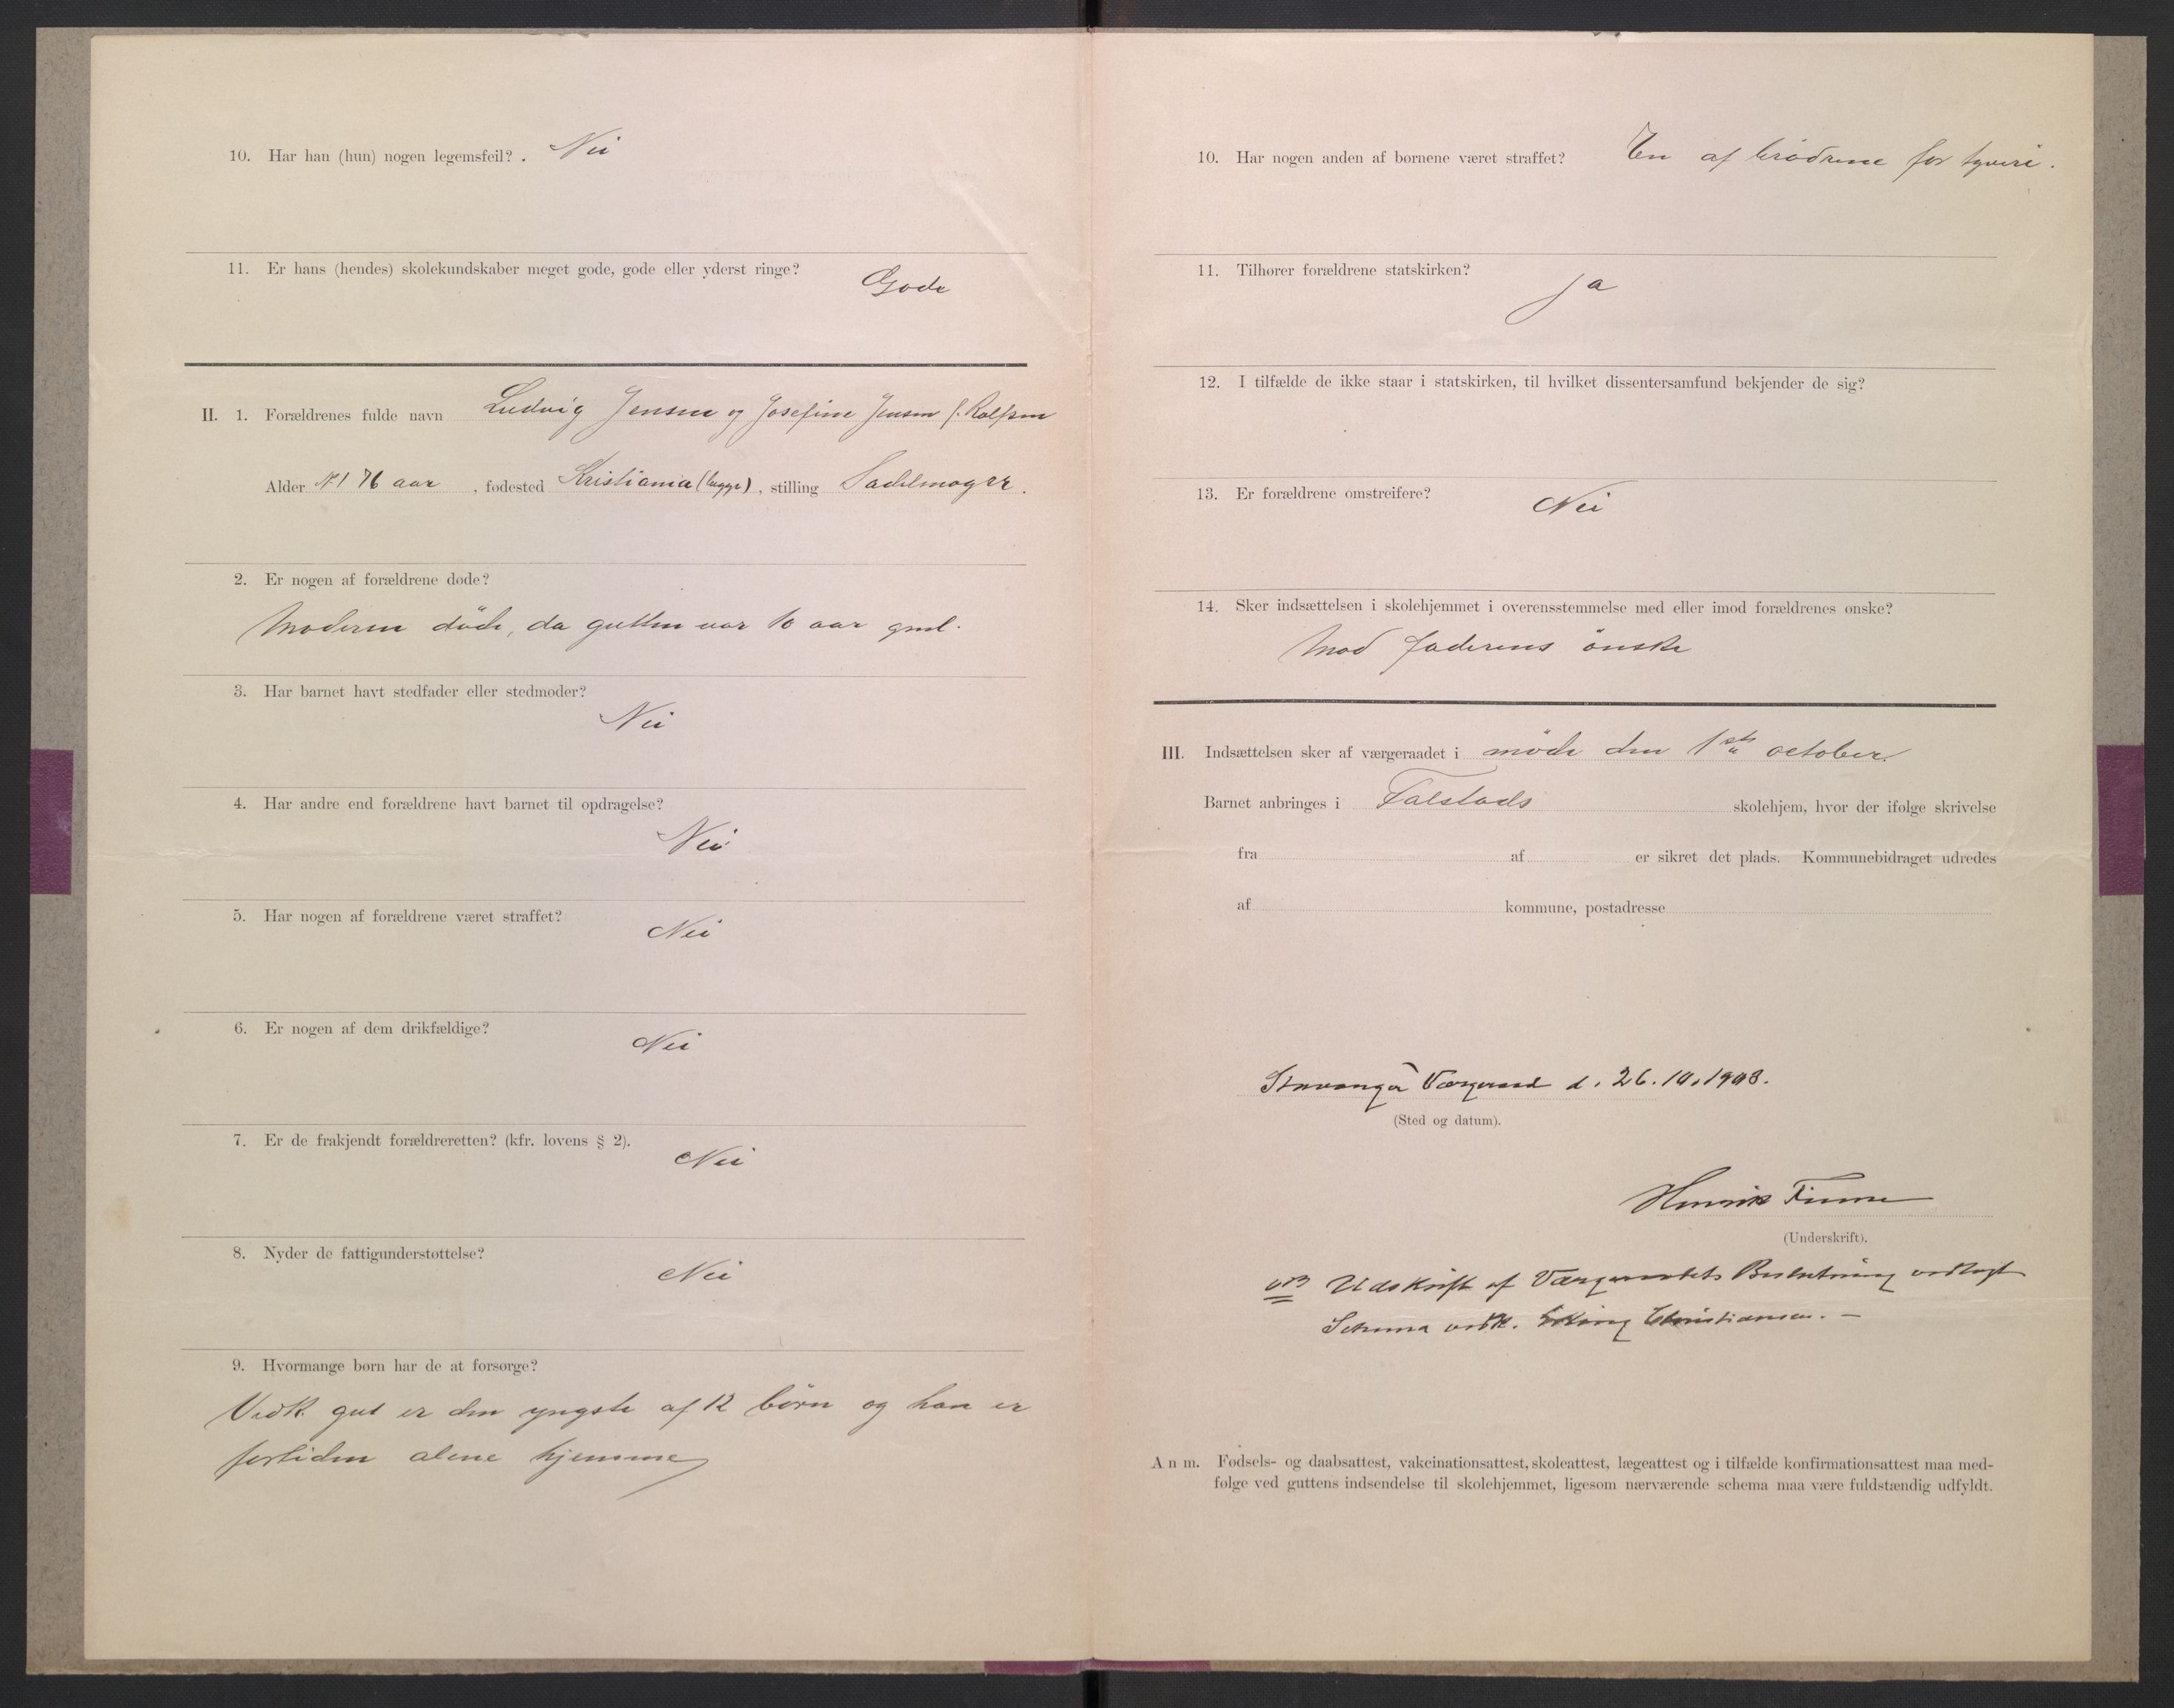 10. Har han (hun) nogen legemsfeil? . Nei
11. Er hans (hendes) skolekundskaber meget gode, gode eller yderst ringe?
Gode
II. 1. Forældrenes fulde navn Ludvig Jensen og Josefine Jensen f. Rolfsen
Alder No 1 76 aar, fødested Kristiania (begge), stilling Sadelmager.
2. Er nogen af forældrene døde?
Moderen döde, da gutten var 10 aar gml.
3. Har barnet havt stedfader eller stedmoder?
Nei
4. Har andre end forældrene havt barnet til opdragelse?
Nei
5. Har nogen af forældrene været straffet?
Nei
6. Er nogen af dem drikfældige?
Nei
7. Er de frakjendt forældreretten? (kfr. lovens § 2).
Nei
8. Nyder de fattigunderstøttelse?
Nei
9. Hvormange børn har de at forsørge?
Vedk. gut er den yngste af 12 börn og han er
fortiden alene hjemme
10. Har nogen anden af børnene været straffet? En af brödrene for tyveri.
11. Tilhører forældrene statskirken?
Ja
12. I tilfælde de ikke staar i statskirken, til hvilket dissentersamfund bekjender de sig?
13. Er forældrene omstreifere?
Nei
14. Sker indsættelsen i skolehjemmet i overensstemmelse med eller imod forældrenes ønske?
Mod faderens önske
III. Indsættelsen sker af værgeraadet i möde den 1ste october.
Barnet anbringes i Falstads skolehjem, hvor der ifølge skrivelse
fra af er sikret det plads. Kommunebidraget udredes
af kommune, postadresse
Stavanger Værgeraad d. 26.10.1908.
(Sted og datum).
Henrik Finne
(Underskrift).
NB Udskrift af Værgeraadets Beslutning vedlagt
Schema vedk. Christiansen. —
Anm. Fødsels- og daabsattest, vakcinationsattest, skoleattest, lægeattest og i tilfælde konfirmationsattest maa med-
følge ved guttens indsendelse til skolehjemmet, ligesom nærværende schema maa være fuldstændig udfyldt.